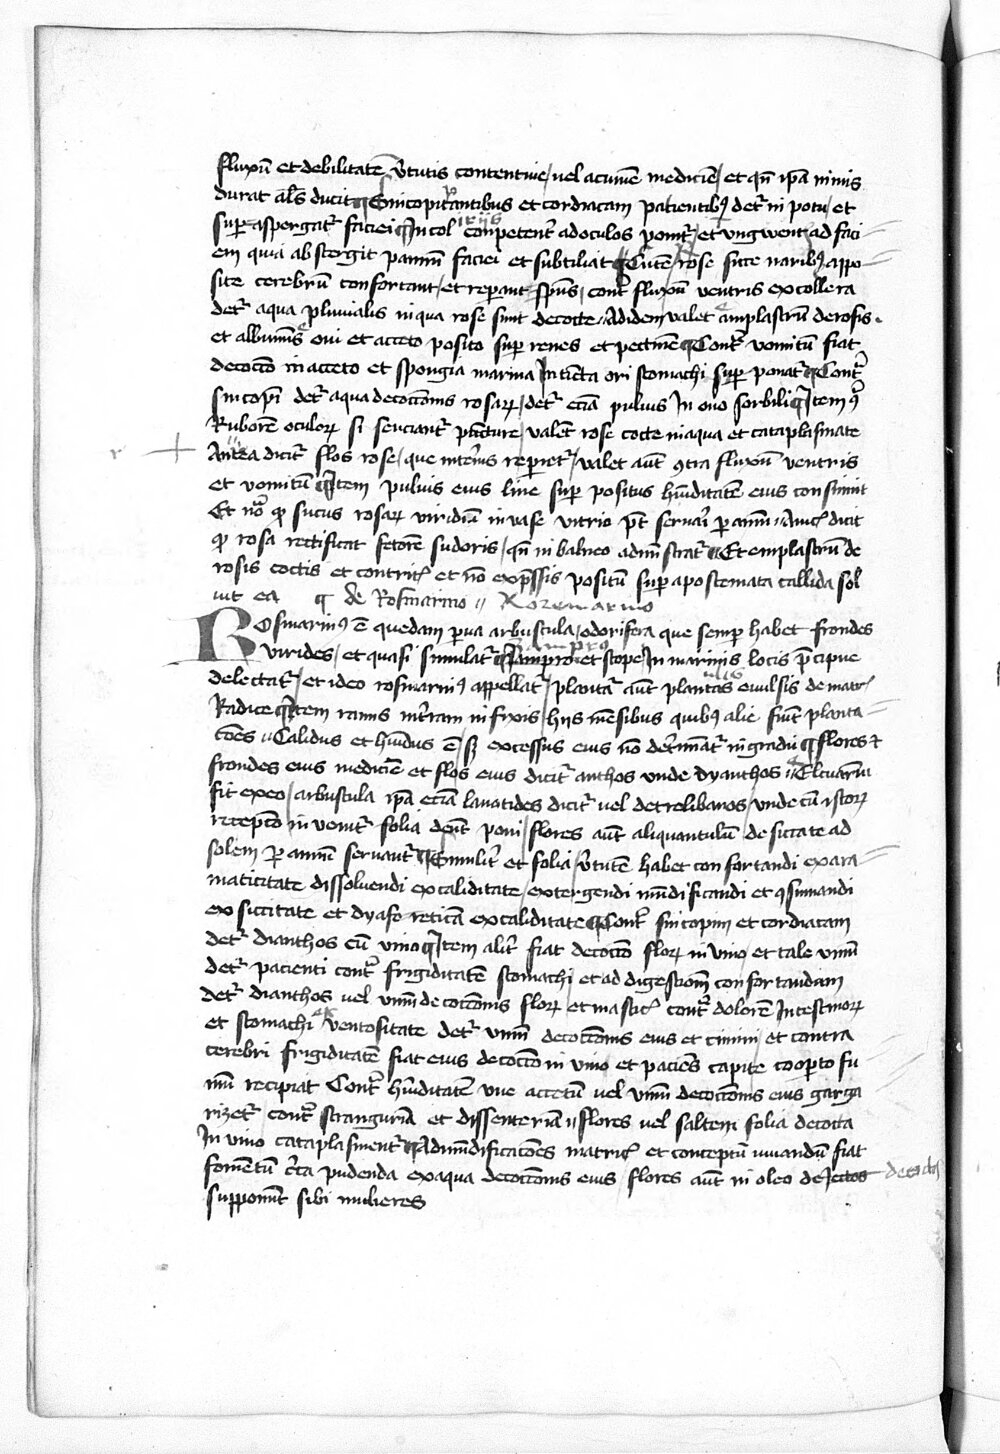 fluxū et debilitatē v̓tutis contentiue / uel acumē medicīe / et qn̄ ip̄a nimis
durat al̓s ducit ¶ Sincopiz̓antibus et cordiacam patientibꝰ det᷑ in potu / et
super aspergat᷑ faciei ¶ In col̓ competent᷑ ad oculos ponit᷑ / et ungwent᷑ ad faci
em quia abstergit pannū faciei et subtiliat ¶ Cutē / rose sicce naribꝰ appo
site cerebrū confortant / et reperant sp̄us / cont᷑ fluxū ventris ex collera
det᷑ aqua pluuialis in qua rose sint decocte // Ad idem valet emplastrū de rosis
et albumīs oui et acceto posito sup renes et pectinē ¶ Cont᷑ vomitū fiat
decocc̄o in acceto et spongia marina Intīcta ori stomachi sup ponat᷑ ¶ Cont᷑
sincopī det᷑ aqua decocc̄onis rosaꝝ / det᷑ ecīa puluis In ouo sorbili ¶ Item ꝯ
Ruborē oculoꝝ si senciant᷑ pūcture / valēt rose cocte in aqua et cataplasmate
Antea dicit᷑ flos rose / que inter̓ius reperiet᷑ / valet aūt ꝯtra fluxū ventris
et vomitū ¶ Item puluis eius line sup positus hūiditatē eius consumit
Et no᷑ ꝙ sucus rosaꝝ viridiū in vase vitrio pt̄ seruari p annū // Auic̓ dicit
ꝙ rosa rectificat fetorē sudoris / qn̄ in balneo admīstrat᷑ // Et emplastrū de
rosis coctis et contrit̓ et nō exp̄ssis positū sup apostemata callida sol
uit ea ¶ de Rosmarino // Rozemarino
Rosmarinꝰ ē quedam p̄ua arbustula / odorifera que semp habet frondes
virides / et quasi simulat᷑ Sampro et scope In marinis locis p̄cipue
delectat᷑ / et ideo rosmarinꝰ appellat᷑ / plantat᷑ aūt plantas euulsis de matr̓
Radice ¶ Item ramis in t̓ram infixis / hijs mēsibus quibꝰ alie fiūt planta
c̄oēs // Calidus et hūidus ē / sꝫ excessus eius nō det᷑minat᷑ in gradu ¶ flores et
frondes eius medicīe et flos eius dicit᷑ anthos unde dyanthos // Elc̄uariū
fit ex eo / arbustula ip̄a ecīa lauatides dicit᷑ uel detrelibanos / unde cū istoꝝ
recepcō inuenit᷑ folia debēt poni / flores aūt aliquantulū de siccate ad
solem p annū seruant᷑ ¶ Similit᷑ et folia / v̓tutē habet confortandi ex aro
maticitate dissoluendi ex caliditate / extergendi mūdificandi et ꝯsumandi
ex siccitate et dyaforeticā ex caliditate ¶ Cont᷑ sincopim et cordiacam
det᷑ dianthos cū vino ¶ Item alit᷑ fiat decocc̄o floꝝ in vino / et tale vinū
det᷑ pacienti cont᷑ frigiditatē stomachi / et ad digestiom̄ confortandam
det᷑ dianthos uel vinū decocc̄onis floꝝ et mastic̓ cont᷑ dolorē Intestinoꝝ
et stomachi ex ventositate det᷑ vinū decocc̄onis eius et cimini / et contra
cerebri frigiditatē fiat eius decocc̄o in vino et paciēs capite coop̄to fu
mū recipiat Cont᷑ hūiditatē vue accetū uel vinū decocc̄onis eius garga
rizet᷑ cont᷑ strangurīa et dissenterīa // flores uel saltem folia decocta
In vino cataplasment᷑ ¶ Ad mūdificac̄oēs matric̓ et conceptū iuuandū fiat
fomētū c̓ca pudenda ex aqua decocc̄onis eius / flores aūt in oleo dejectos decoctos
supponūt sibi mulieres